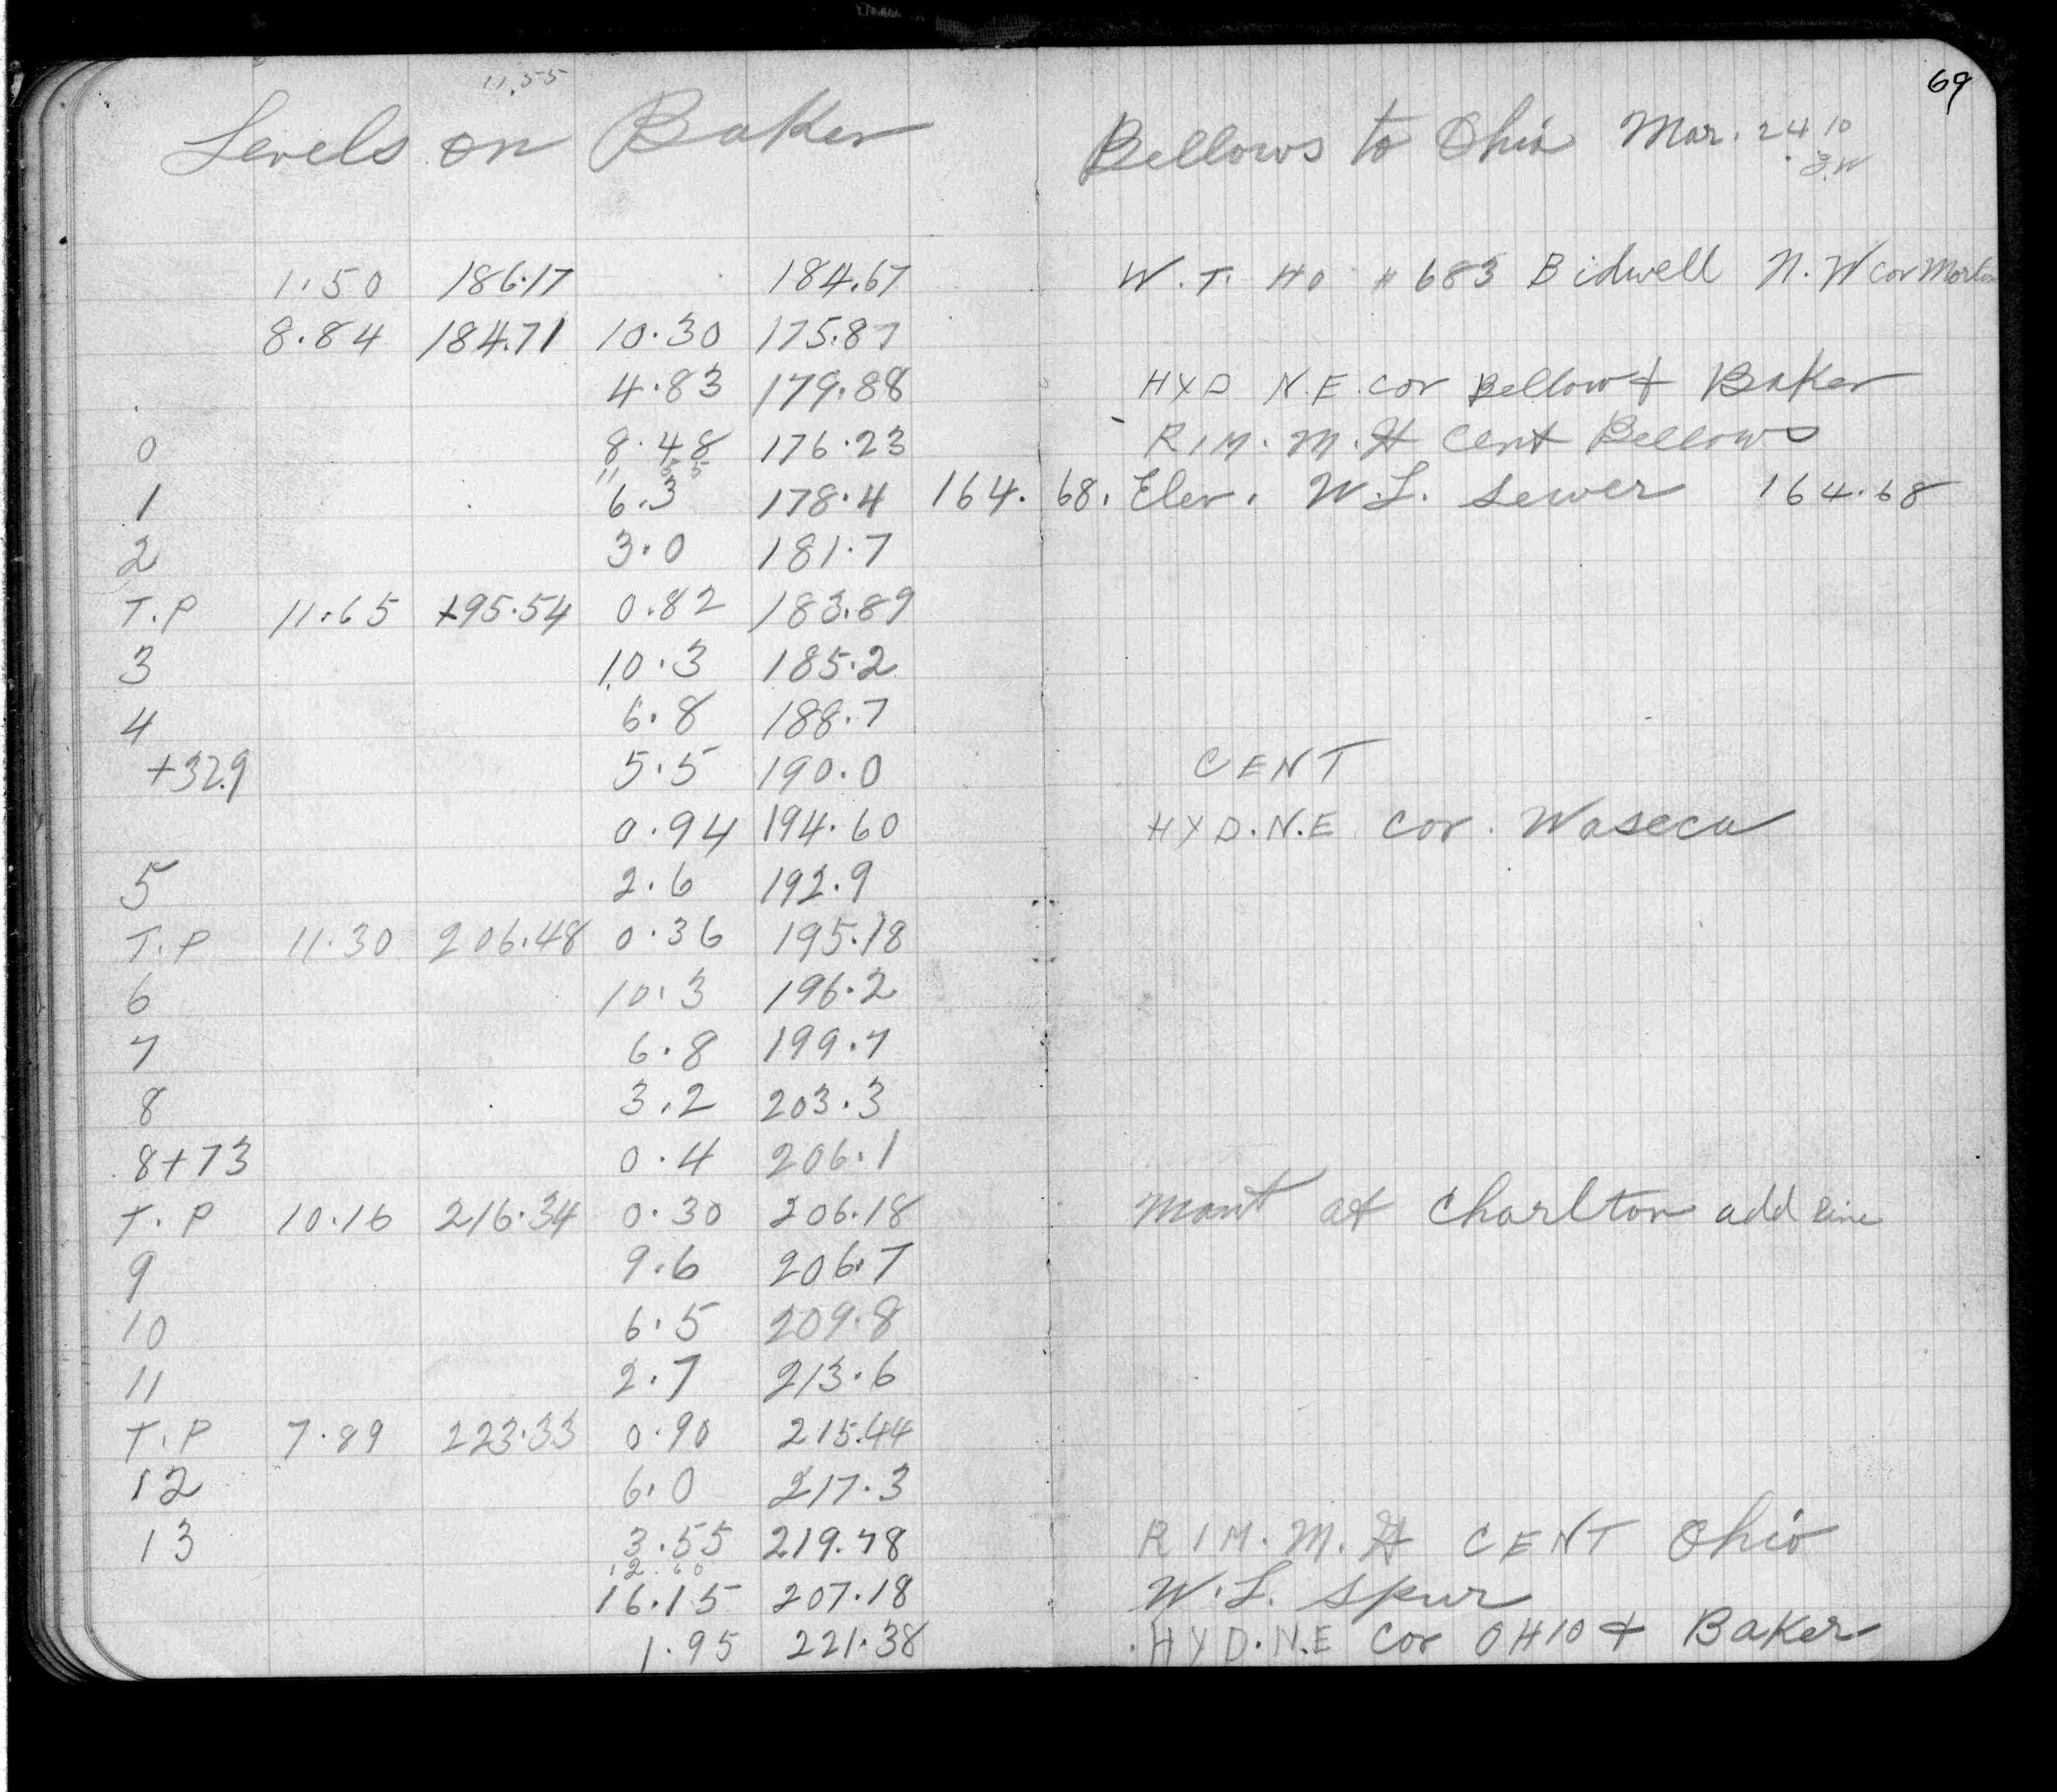 69
11.55
Levels on Baker Bellows to Ohio Mar. 24 10
1.50 186.17 184.67 W.T. HO # 683 Bidwell N.W cor Morton
8.84 184.71 10.30 175.87
4.83 179.88 HYD N.E. cor Bellow + Baker
0 8.48 176.23 RIM. M.H cent Bellows
11 55
1 6.3 178.4 164.68. Elev. W.L. sewer 164.68
2 3.0 181.7
T.P 11.65 195.54 0.82 183.89
3 10.3 185.2
4 6.8 188.7
+32.9 5.5 190.0 CENT
0.94 194.60 HYD. N.E. cor. Waseca
5 2.6 192.9
T.P 11.30 206.48 0.36 195.18
6 10.3 196.2
7 6.8 199.7
8 3.2 203.3
8+73 0.4 206.1
T.P 10.16 216.34 0.30 206.18 Mont at Charlton add line
9 9.6 206.7
10 6.5 209.8
11 2.7 213.6
T.P 7.89 223.33 0.90 215.44
12 6.0 217.3
13 3.55 219.78 RIM. M.H CENT Ohio
12.60
16.15 207.18 W.L. Spur
1.95 221.38 HYD. N.E cor OHIO + Baker